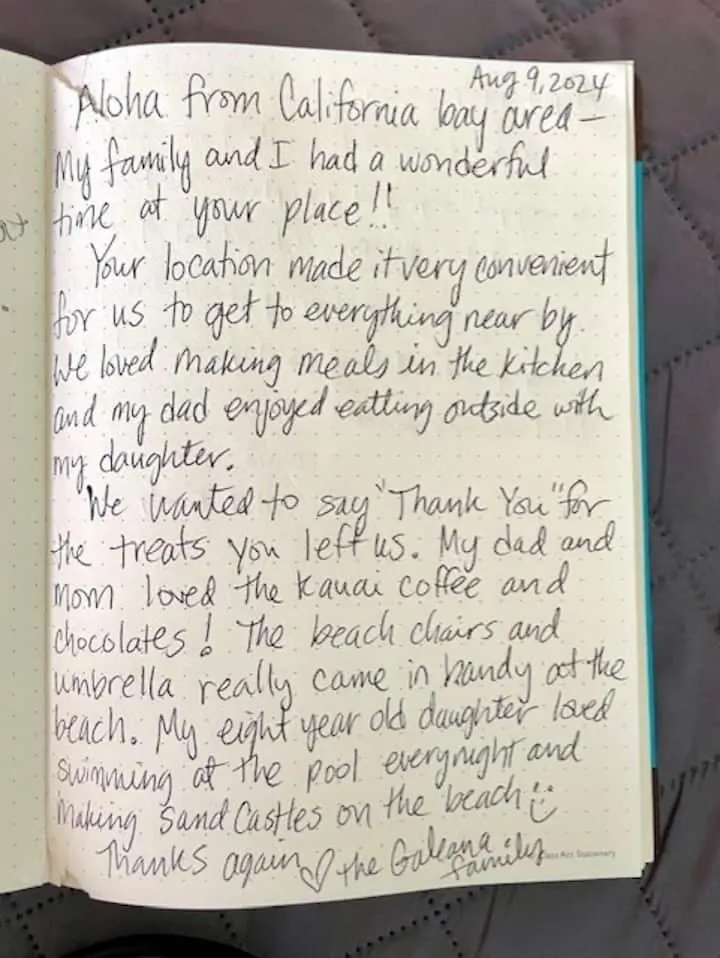 Aug 9, 2024
Aloha from California bay area –
My family and I had a wonderful
time at your place!!
Your location made it very convenient
for us to get to everything near by.
We loved making meals in the kitchen
and my dad enjoyed eatting outside with
my daughter.
We wanted to say "Thank You" for
the treats you left us. My dad and
mom loved the Kauai coffee and
chocolates! The beach chairs and
umbrella really came in handy at the
beach. My eight year old daughter loved
swimming at the pool everynight and
making Sand Castles on the beach :)
Thanks again ♡ the Galeana
family
Stationery